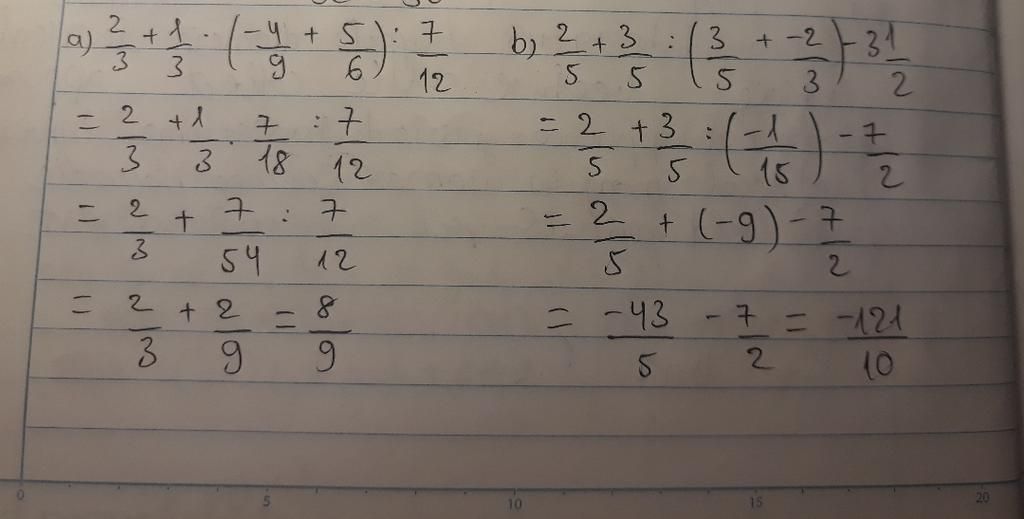 a) 2/3 + 1/3 · (-4/9 + 5/6) : 7/12
= 2/3 + 1/3 · 7/18 : 7/12
= 2/3 + 7/54 : 7/12
= 2/3 + 2/9 = 8/9
b) 2/5 + 3/5 : (3/5 + -2/3) - 3 1/2
= 2/5 + 3/5 : (-1/15) - 7/2
= 2/5 + (-9) - 7/2
= -43/5 - 7/2 = -121/10
0 5 10 15 20